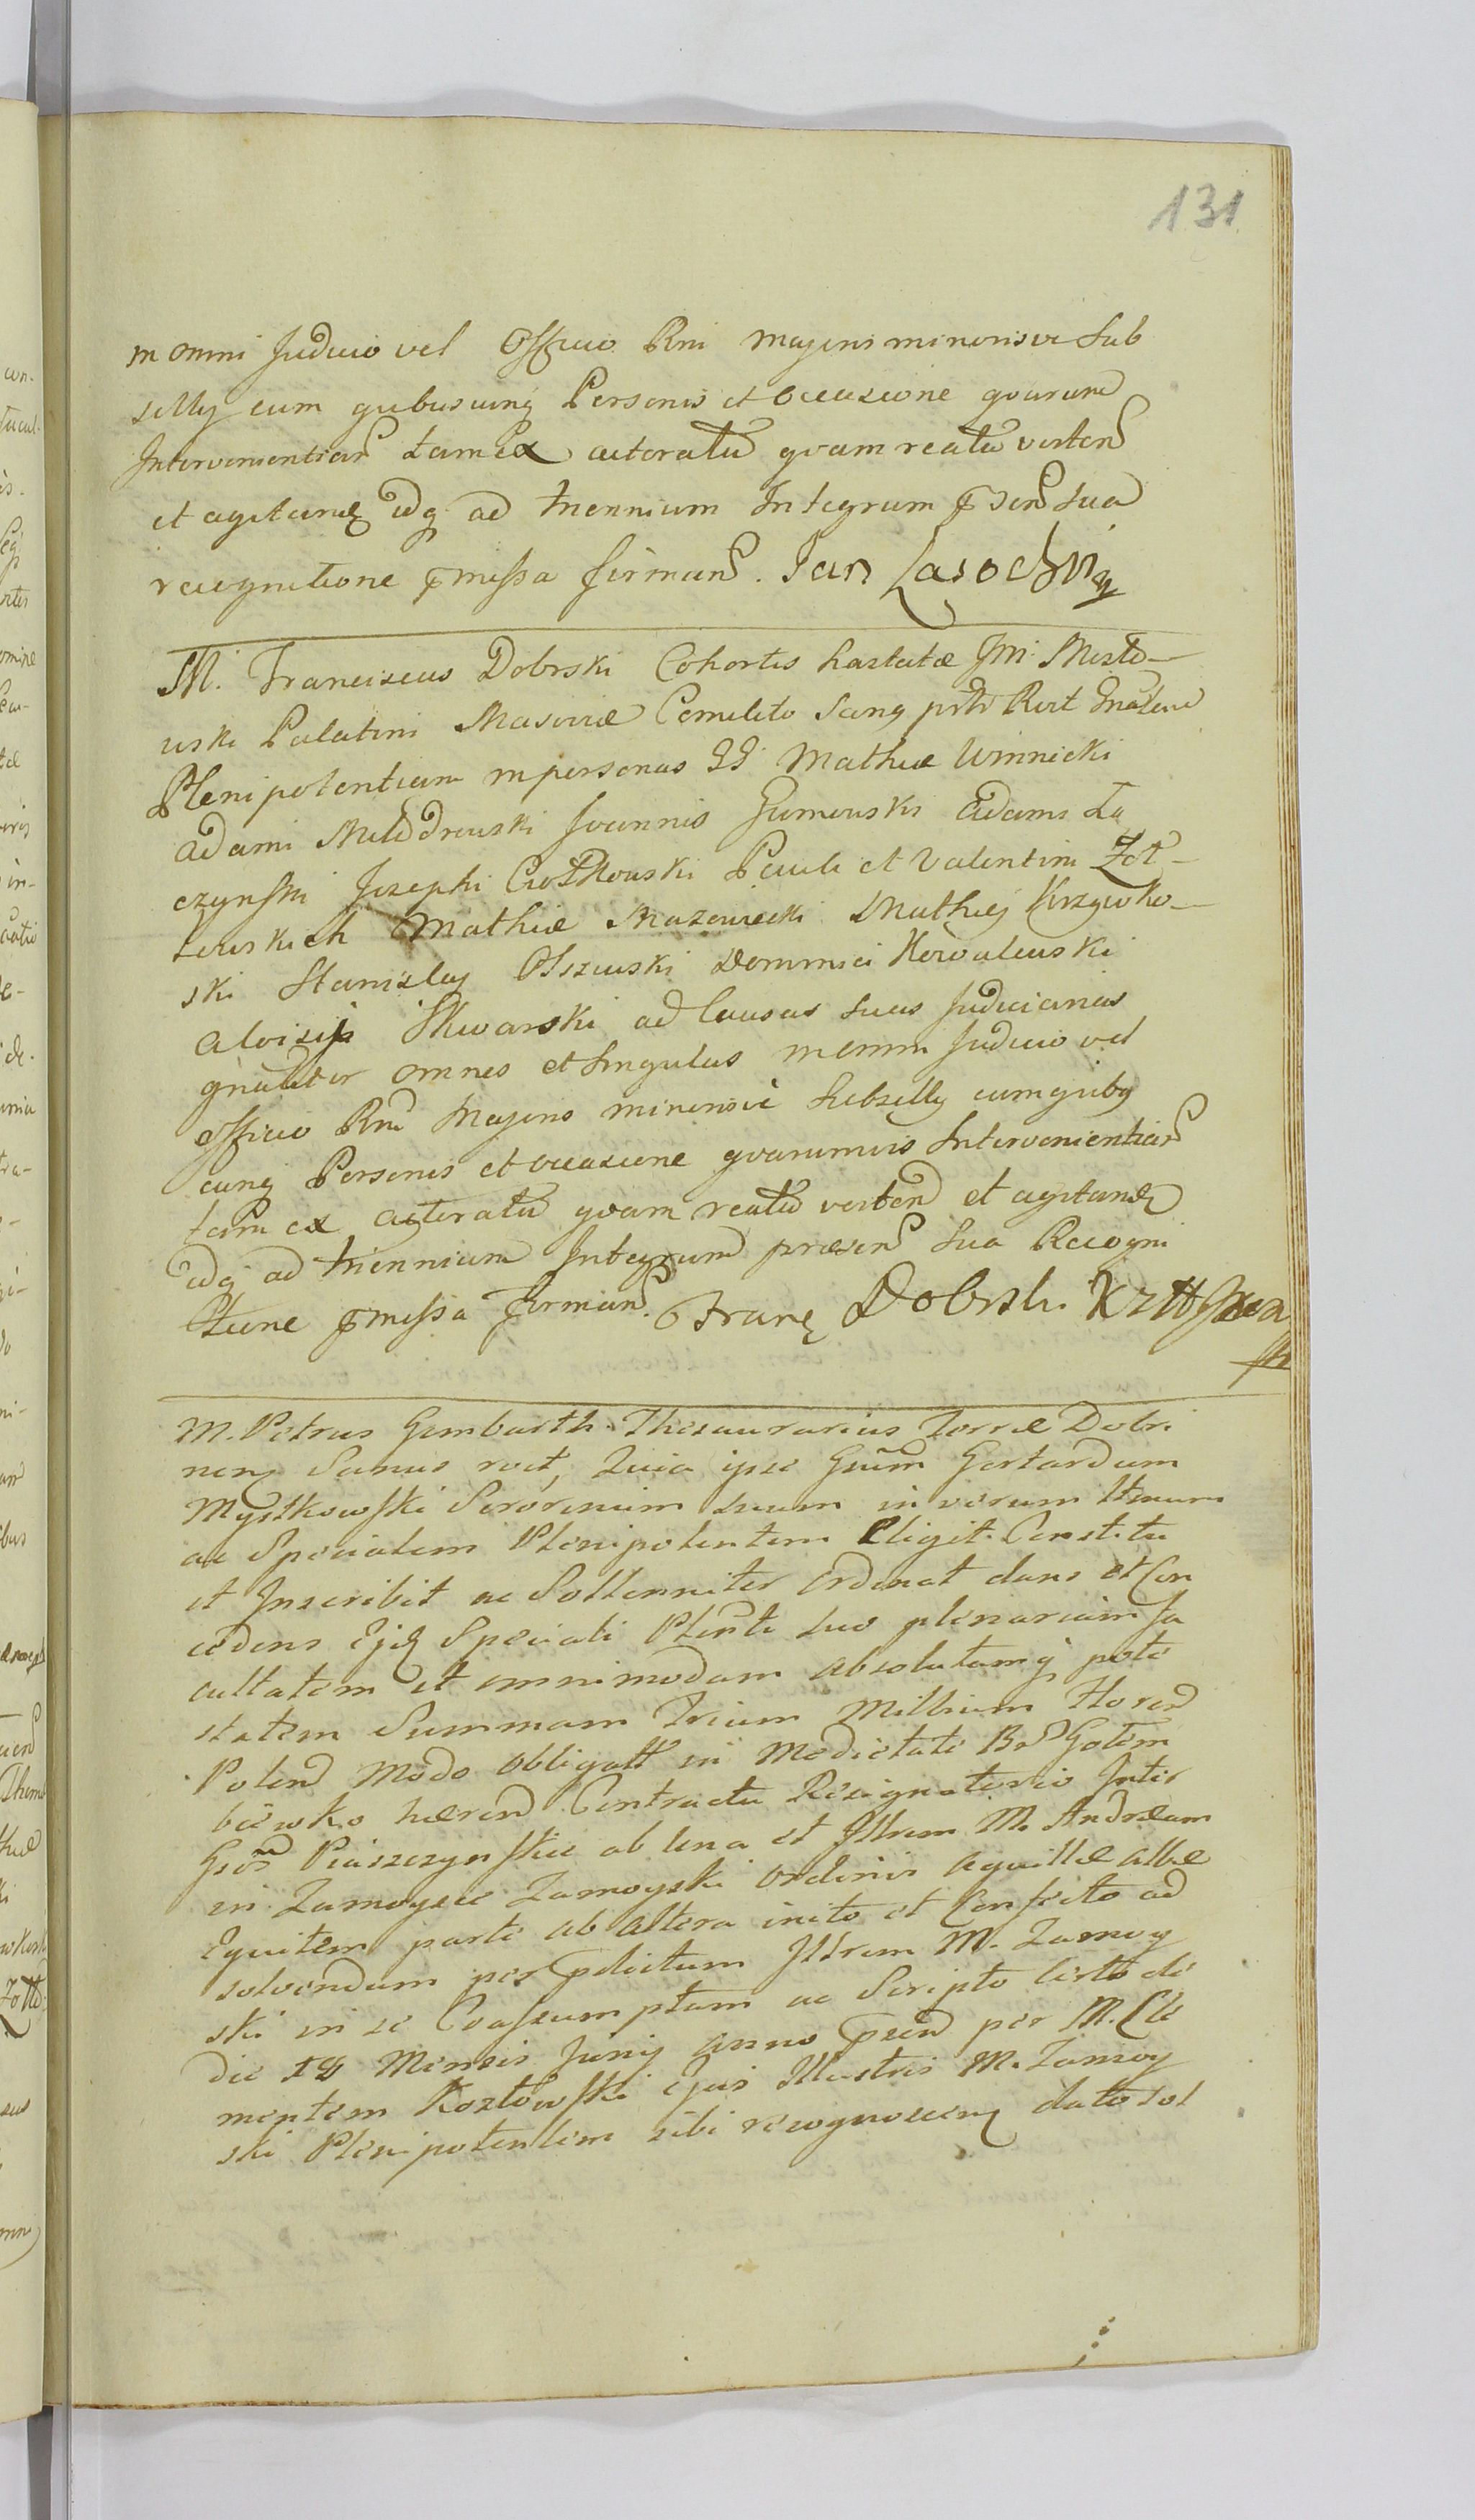 131
in omni Judicio vel Officio Rni Majoris minorisve Sub
sellij cum quibusvinq Personis et occasione qvarum
Intervenientiar tam ex actoratu qvam reatu verten
et agitand idq ad triennium Integrum p sen sua
recognitione pmissa firman. Jan Lasocki
M. Franciscus Dobrski Cohortis hastatæ JM. Mosto-
uski Palatini Masoviæ Comilito Sanq Rect Gnalem
Plenipotentiam in personas GG Mathiæ Winnicki
Adami Joannis Gumouski Adami Łą
czynski Josephi Ciołkouski Pauli et Valentini Żół-
touskich Mathiæ Mazowiecki Mathiej Krzywko-
ski Stanislaj Olszeuski Dominici Kowaleuski
Aloisij Skwarski ad Causas suas Judiciarias
gnaliter omnes et singulas in omni Judicio vel
officio Rni Majoris minorisve Subsellij cum quibq
cunq Personis et occasione qvarumvis Intervenientiar
tam ex actoratu qvam reatu verten et agitand
idq ad triennium Integrum præsen sua Recogni
tione pmissa firman. Franc Dobrski
M. Petrus Gembarth Thesaurarius Terræ Dobri
nen Sanus rect, Quia ipse Gnum Gertardum
Mystkowski Sororinum suum in verum ltmum
ac Specialem Plenipotentem Eligit Constitu
et Inscribit ac Sollenniter Ordinat dans et Con
cedens Ejd Speciali Plenti suo plenariam fa
cultatem et omnimodam absolutamq pote
statem Summam Trium Millium floren
Polon Modo obligatt in Medietate Bon Gołem
biewko hæren Contractu Resignatorio Inter
Gsos Piaszczynskie ab una et Illrem M. Andream
in Zamoysce Zamoyski Ordinis Aquillæ Albæ
Equitem parte ab Altera inito et Confecto ad
solvendum per pdictum Illrem M. Zamoy
ski in se Coassumptam ac Scripto certo de
die 18 Mensis Junij anno psen per M. Cle
mentem Kozłowski ejus Illustris M. Zamoy
ski Plenipotentem sibi recognoscen dato sol